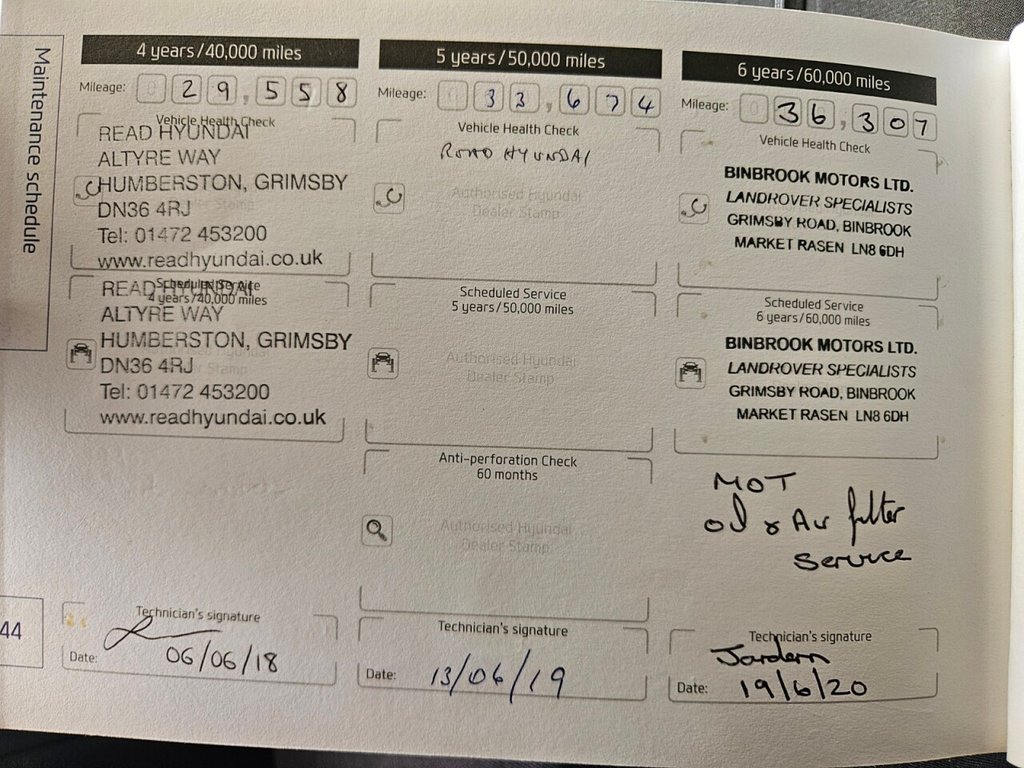 Maintenance schedule
44
4 years/40,000 miles
Mileage: 0 29,558
Vehicle Health Check
READ HYUNDAI
ALTYRE WAY
HUMBERSTON, GRIMSBY
DN36 4RJ
Tel: 01472 453200
www.readhyundai.co.uk
Scheduled Service
4 years/40,000 miles
READ HYUNDAI
ALTYRE WAY
HUMBERSTON, GRIMSBY
DN36 4RJ
Tel: 01472 453200
www.readhyundai.co.uk
Technician's signature
Date: 06/06/18
5 years/50,000 miles
Mileage: 0 33,674
Vehicle Health Check
ROAD HYUNDAI
Authorised Hyundai
Dealer Stamp
Scheduled Service
5 years/50,000 miles
Authorised Hyundai
Dealer Stamp
Anti-perforation Check
60 months
Authorised Hyundai
Dealer Stamp
Technician's signature
Date: 13/06/19
6 years/60,000 miles
Mileage: 0 36,307
Vehicle Health Check
BINBROOK MOTORS LTD.
LANDROVER SPECIALISTS
GRIMSBY ROAD, BINBROOK
MARKET RASEN LN8 6DH
Scheduled Service
6 years/60,000 miles
BINBROOK MOTORS LTD.
LANDROVER SPECIALISTS
GRIMSBY ROAD, BINBROOK
MARKET RASEN LN8 6DH
MOT
oil & Air filter
Service
Technician's signature
Date: 19/6/20